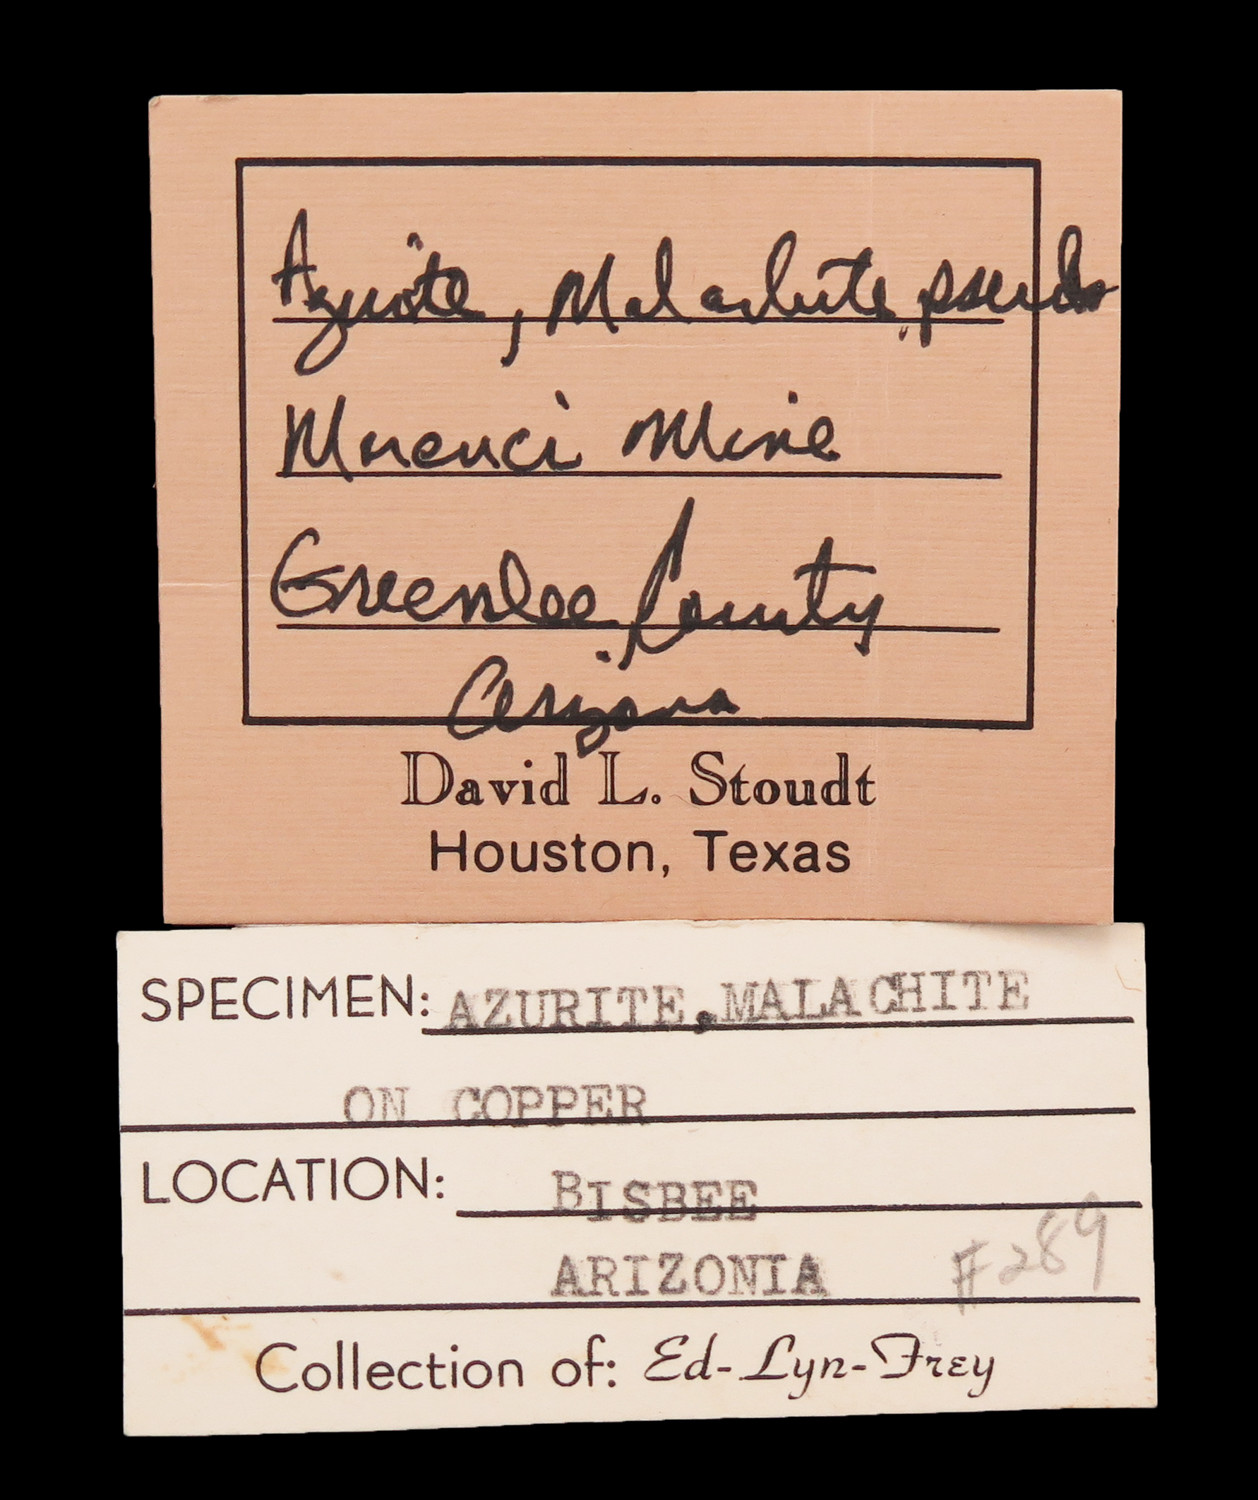 Azurite, Malachite pseudo
Morenci Mine
Greenlee County
Arizona
David L. Stoudt
Houston, Texas
SPECIMEN: AZURITE, MALACHITE
ON COPPER
LOCATION: BISBEE
ARIZONIA #289
Collection of: Ed-Lyn-Frey